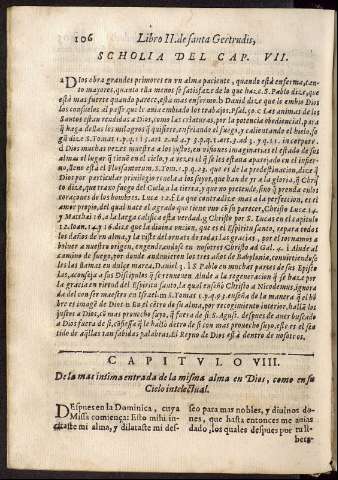 106 Libro II. de santa Gertrudis,
SCHOLIA DEL CAP. VII.
a Dios obra grandes primores en vn alma paciente, quando està enferma,
mores, quanto ella menos se satisfaze de lo que haze. S. Pablo dize, que
està mas fuerte quando parece, està mas enfermo. b Dauid dize que le embio Dios
los consuelos al passo que le auia embiado los trabajos. Psal. 50. c Las animas de los
Santos estàn rendidas a Dios, como las criaturas, por la potencia obediencial, para
q haga dellas los milagros q quisiere, enfriando al fuego, y calentando el huelo, se
gũ dize S. Tomas
d Dios muchas vezes muestra a los justos, en visiones imaginarias el estado de sus
almas el lugar q tienē en el cielo, y a vezes el q se les estaua aparejado en el infier-
no,
Dios por particular priuilegio reuela a los suyos, que han de yr a la gloria. f Chris
to dize, que traxo fuego del Cielo a la tierra, y que no pretende, sino q prenda en los
coraçones de los hombres. Luc. 12. f Lo que contradize mas a la perfeccion, es el
amor propio, del qual nace el agrado que tiene vno de su parecer, Christo Luc. 14.
y Matthæi 16. a la larga califica esta verdad. g Christo por S. Lucas en el capitulo
12. Ioan. 14. y 16. dize que la diuina vncion, que es el Espiritu santo, repara todos
los daños de vn alma, y la viste del ornato de todas las gracias, por el tornamos a
boluer a nuestro origen, engendrandose en nosotros Christo ad Gal. 4. i Aludè al
camino de fuego, por donde anduuieron los tres niños de Babylonia, conuirtiendose
los las llamas en dulce marea, Daniel 3. l S. Pablo en muchas partes de sus Episto
las, aconseja a sus Discipulos q se renueuen dando a la regeneracion q se haze por
la gracia en virtud del Espiritu santo, la qual enseñò Christo a Nicodemus, ignorā
do del con ser maestro en Israel.
bre es imagē de Dios en lo essencial de su alma, por recogimiento interior, hallā los
justos a Dios, cō mas prouecho suyo, q fuera de si. S. Agust. despues de auer buscado
a Dios fuera de si, cōfiessa q le hallò dentro de si con mas prouecho suyo, este es el sen
tido de aq̃llas tan sabidas palabras, El Reyno de Dios està dentro de nosotros.
CAPITVLO VIII.
De la mas intima entrada de la misma alma en Dios, como en su
Cielo intelectual.
Despues en la Dominica, cuya
Missa comiença: Esto mihi in-
citaste mi alma, y dilataste mi des-
seo para mas nobles, y diuinos do-
nes, que hasta entonces me auias
dado, los quales despues por tu li-
bera-